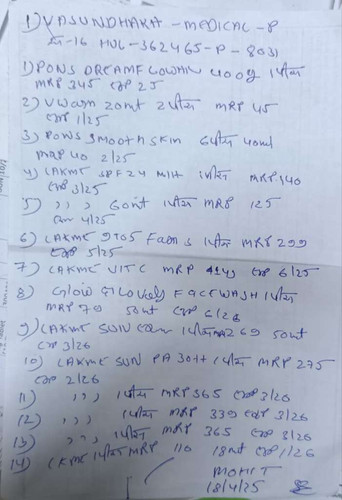 1) VASUNDHARA - MEDICAL - P
HUL - 362465 - P - 8031
1) PONS DREAMFLOWAR 400g 1पीस
MRP 345 exp 25
2) 20ml 2पीस MRP 45
exp 1/25
3) PONS Smooth SKin 6पीस 40ml
MRP 40 2/25
4) LAKME SPF 24 1पीस MRP 140
exp 3/25
5) ,, ,, 60ml 1पीस MRP 125
4/25
6) LAKME 9TO5 1पीस MRP 299
exp 5/25
7) LAKME VIT C MRP exp 6/25
8) Glow & Lovely FACEWASH 1पीस
MRP 79 50ml exp 6/26
9) LAKME SUN 1पीस MRP 269 50ml
exp 3/26
10) LAKME SUN PA 30++ 1पीस MRP 275
exp 2/26
11) ,, ,, 1पीस MRP 365 exp 3/26
12) ,, ,, 1पीस MRP 339 exp 3/26
13) ,, ,, 1पीस MRP 365 exp 3/26
14) LKME 1पीस MRP 110 18ml exp 1/26
MOHIT
18/4/25